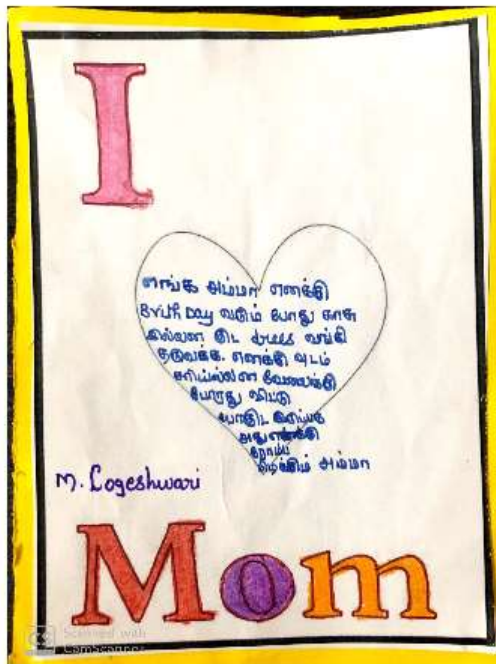 I
எங்க அம்மா எனக்கு
Brith Day வரும் போது காசு
இல்லன கூட dress வங்கி
தருவக்க. எனக்கு உடம்
சரியில்லன வேலைக்கு
போரது விட்டு
அது எனக்கு
ரோம்ப
பிடிக்கும் அம்மா
M. Logeshwari
Mom
CS Scanned with
CamScanner